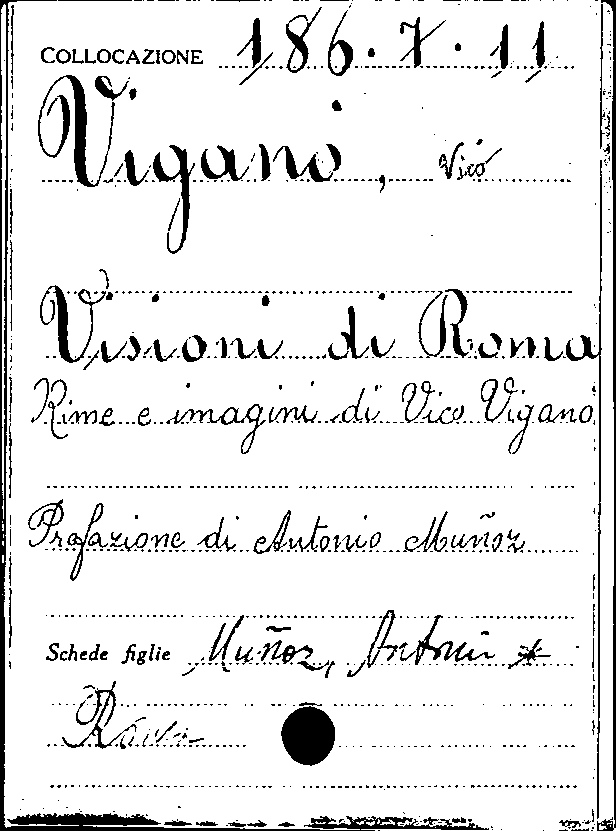 COLLOCAZIONE 186.7.11
Viganò, Vico
Visioni di Roma
Rime e imagini di Vico Viganò
Prefazione di Antonio Muñoz
Schede figlie Muñoz, Antonio *
Roma